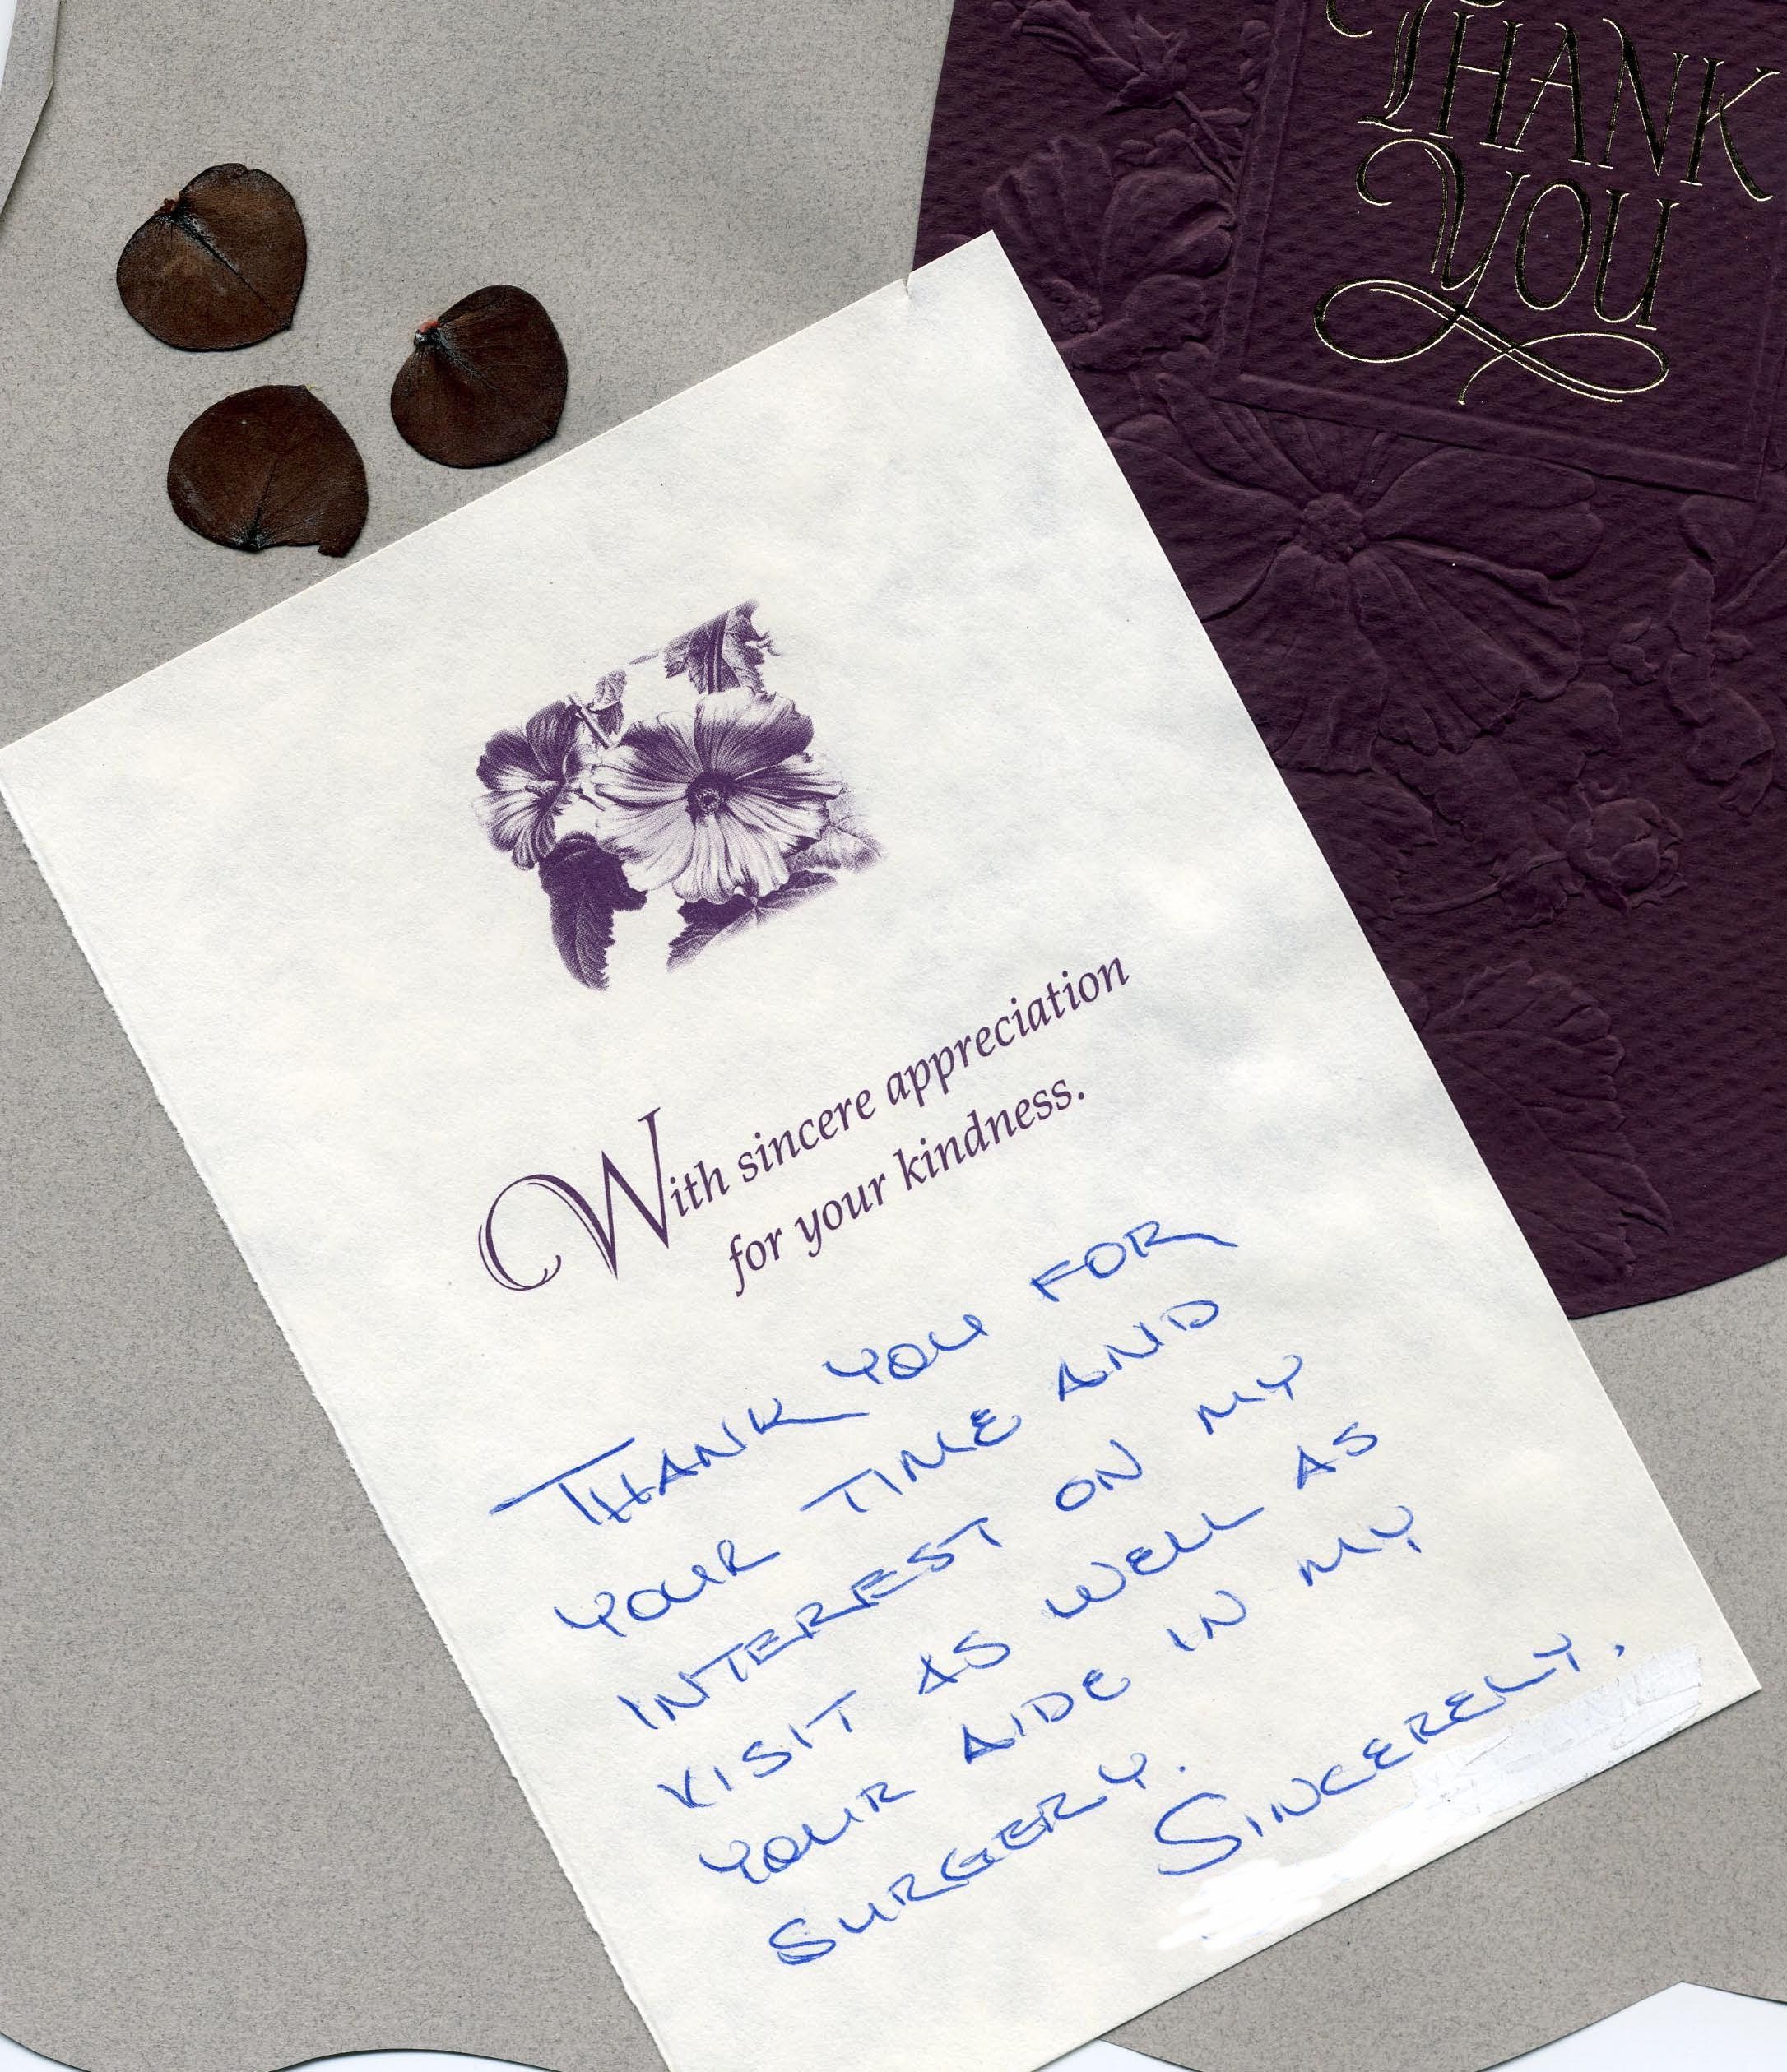 THANK
YOU
With sincere appreciation
for your kindness.
THANK YOU FOR
YOUR TIME AND
INTEREST ON MY
VISIT AS WELL AS
YOUR AIDE IN MY
SURGERY.
SINCERELY,